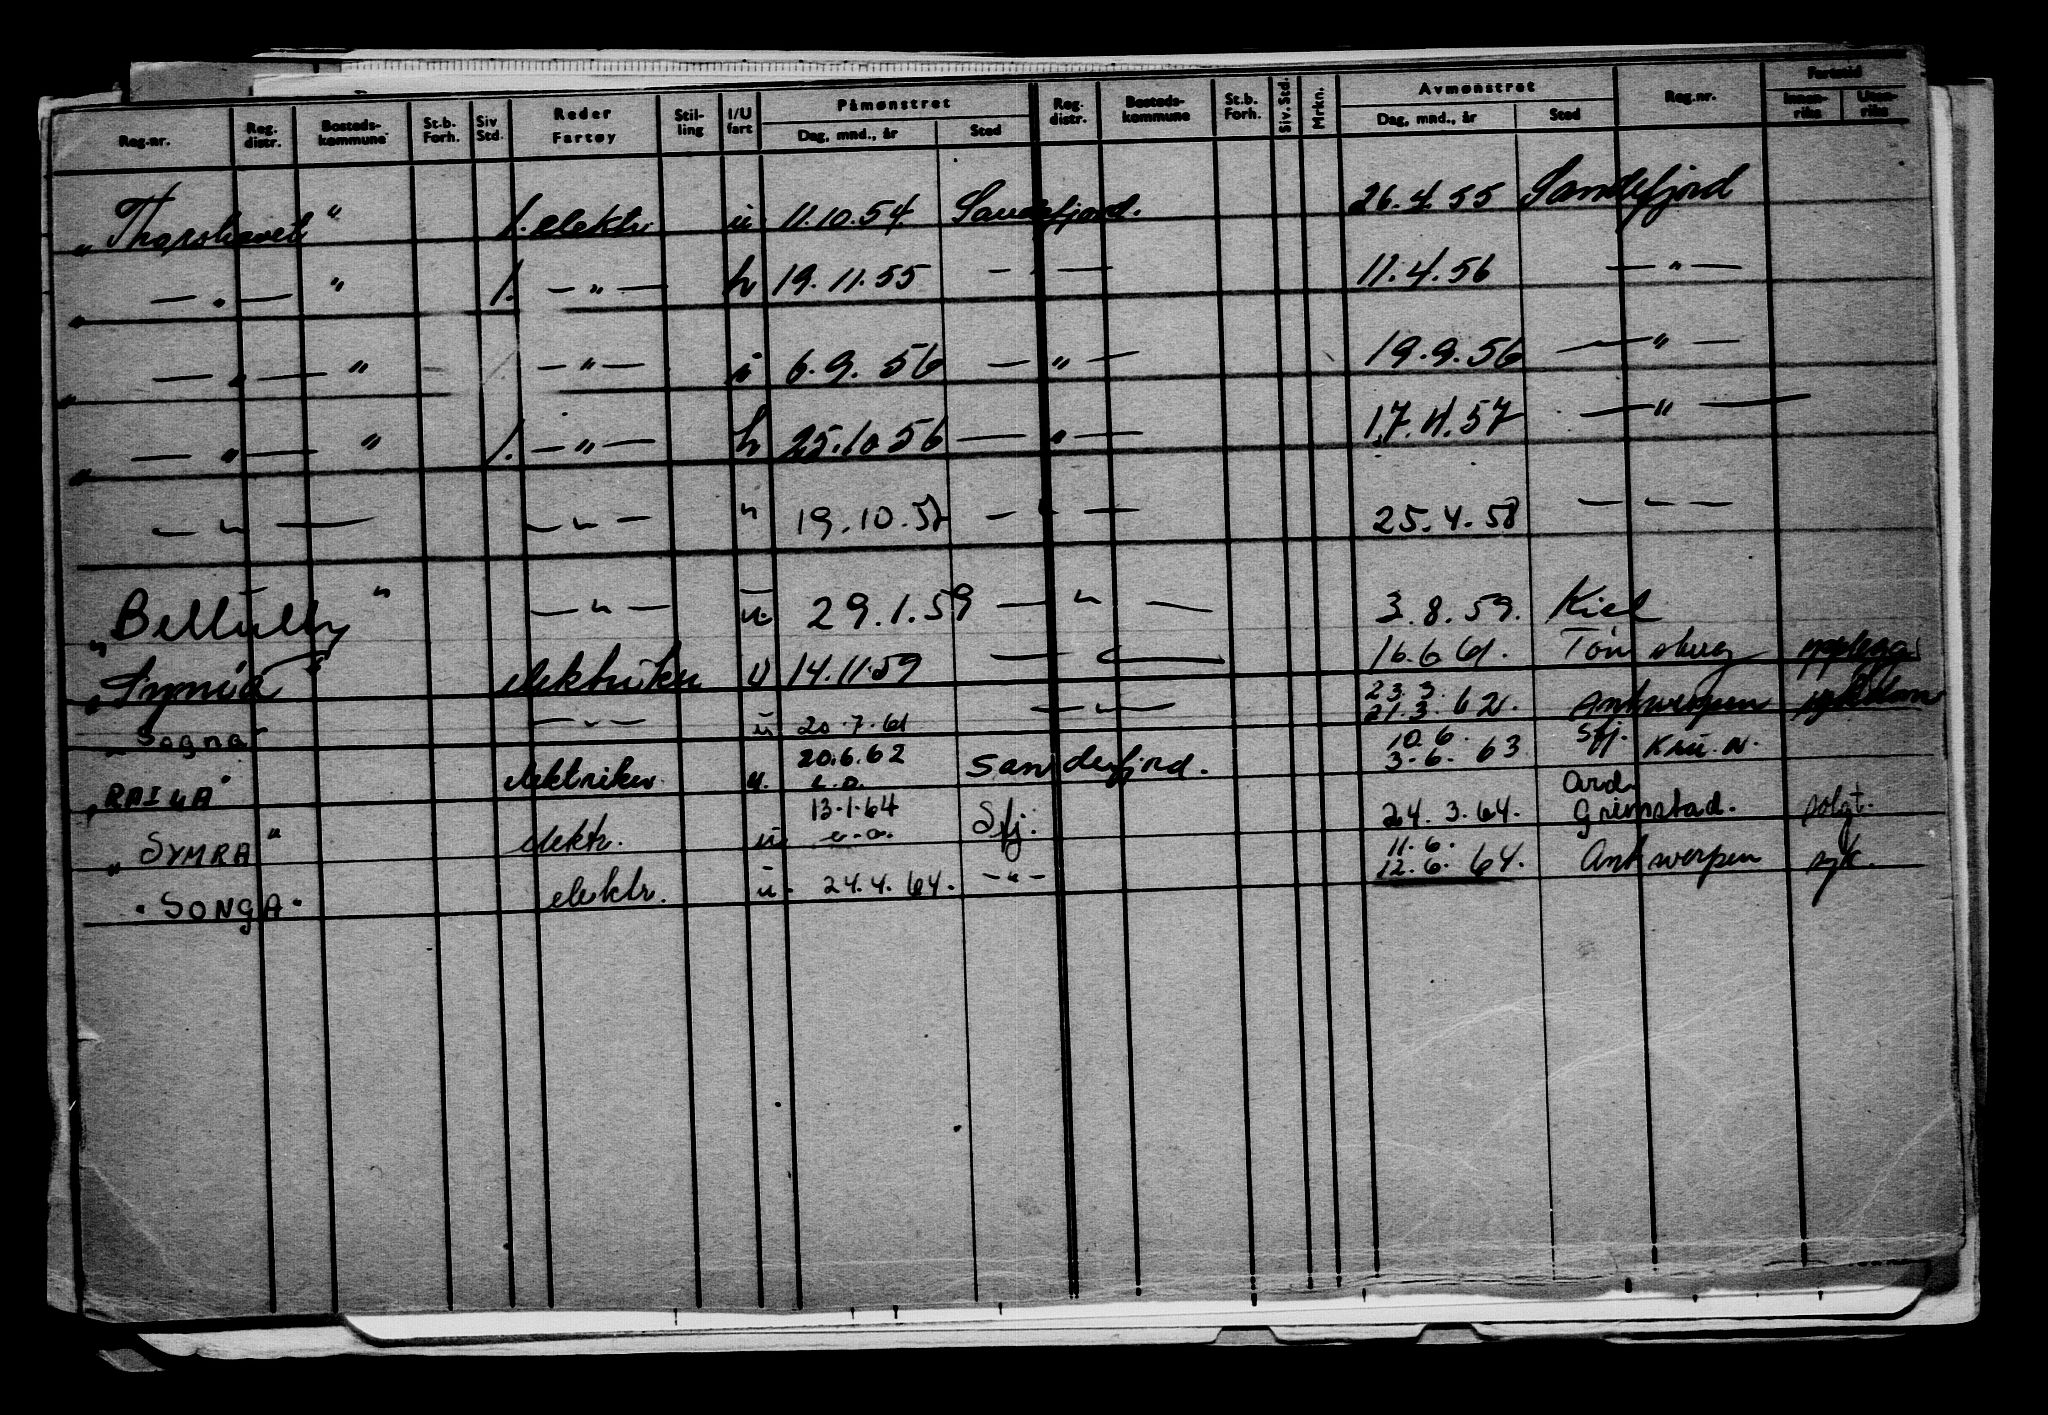 Reg.nr. Reg. distr. Bosteds-kommune St.b. Forh. Siv Std. Reder Fartøy Stil-ling I/U fart Påmønstret Dag, mnd., år Sted Reg. distr. Bosteds-kommune St.b. Forh. Siv. Std. Mrkn. Avmønstret Dag, mnd., år Sted Reg.nr. Fartstid Innen-riks Uten-riks
"Thorshavet" 1. elektr. u 11.10.54 Sandefjord. 26.4.55 Sandefjord
" — " — " 1. — " — h 19.11.55 — — 11.4.56 — " —
" — " — " — " — i 6.9.56 — " — 19.9.56 — " —
" — " — " 1. — " — h 25.10.56 — " — 17.4.57 — " —
— " — — " — " 19.10.57 — " — 25.4.58 — " —
" " — " — u 29.1.59 — " — 3.8.59. Kiel
" " elektriker u 14.11.59 — — 16.6.61. Tønsberg
" Sogna" — " — u 20.7.61 — " — 23.3. 21.3.62. Antwerpen
"RAILA" elektriker u. 20.6.62 Sandefjord. 10.6. 3.6.63 Sfj.
" SYMRA " elektr. u 13.1.64 Sfj. 24.3.64. Grimstad. solgt.
"SONGA" elektr. u. 24.4.64. — " — 11.6. 12.6.64. Antwerpen syk.